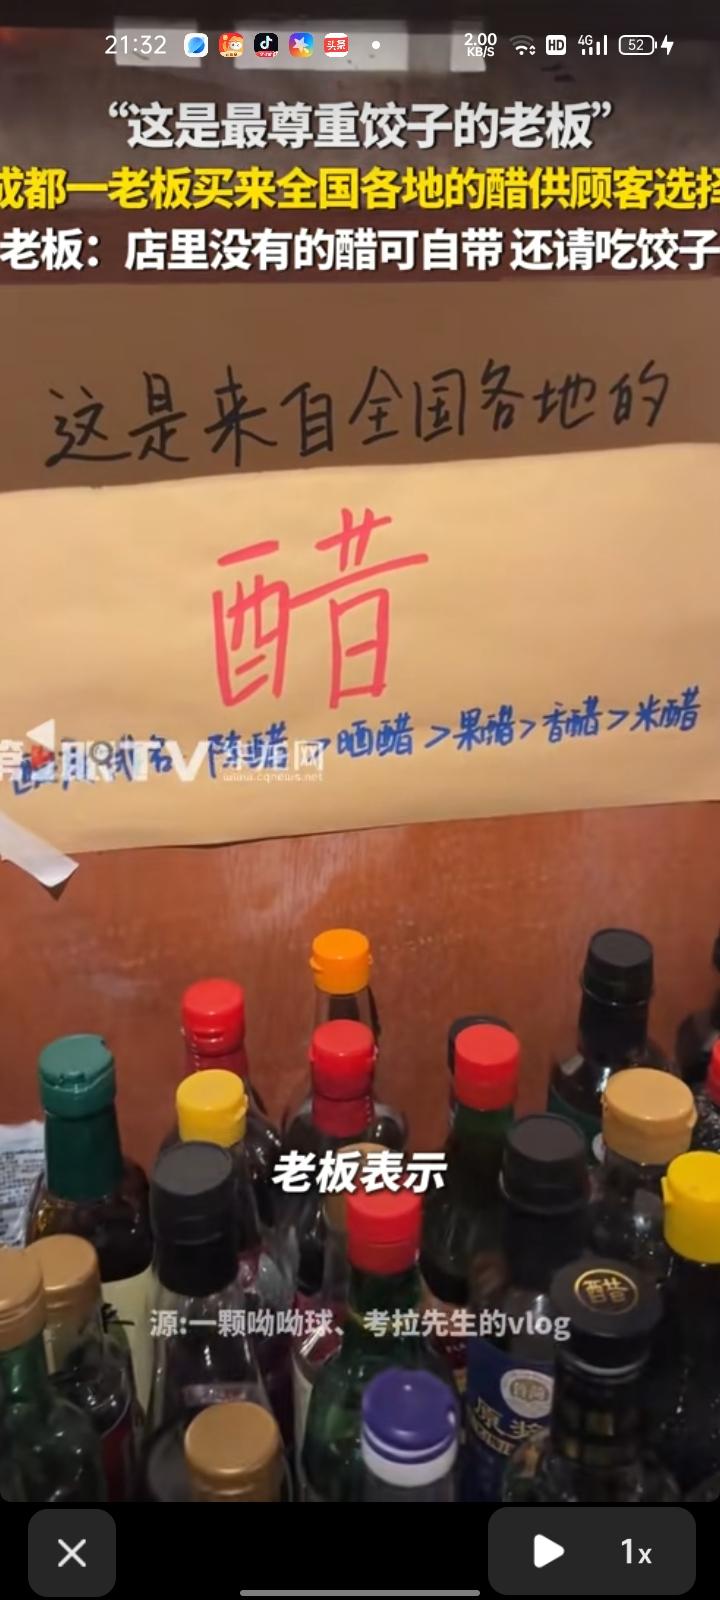 21:32
头条
2.00 KB/S
HD
4G
52
“这是最尊重饺子的老板”
成都一老板买来全国各地的醋供顾客选择
老板：店里没有的醋可自带 还请吃饺子
这是来自全国各地的
醋
陈醋>晒醋>果醋>香醋>米醋
第1眼TV 华龙网
www.cqnews.net
老板表示
醋
源:一颗呦呦球、考拉先生的vlog
原浆
1x